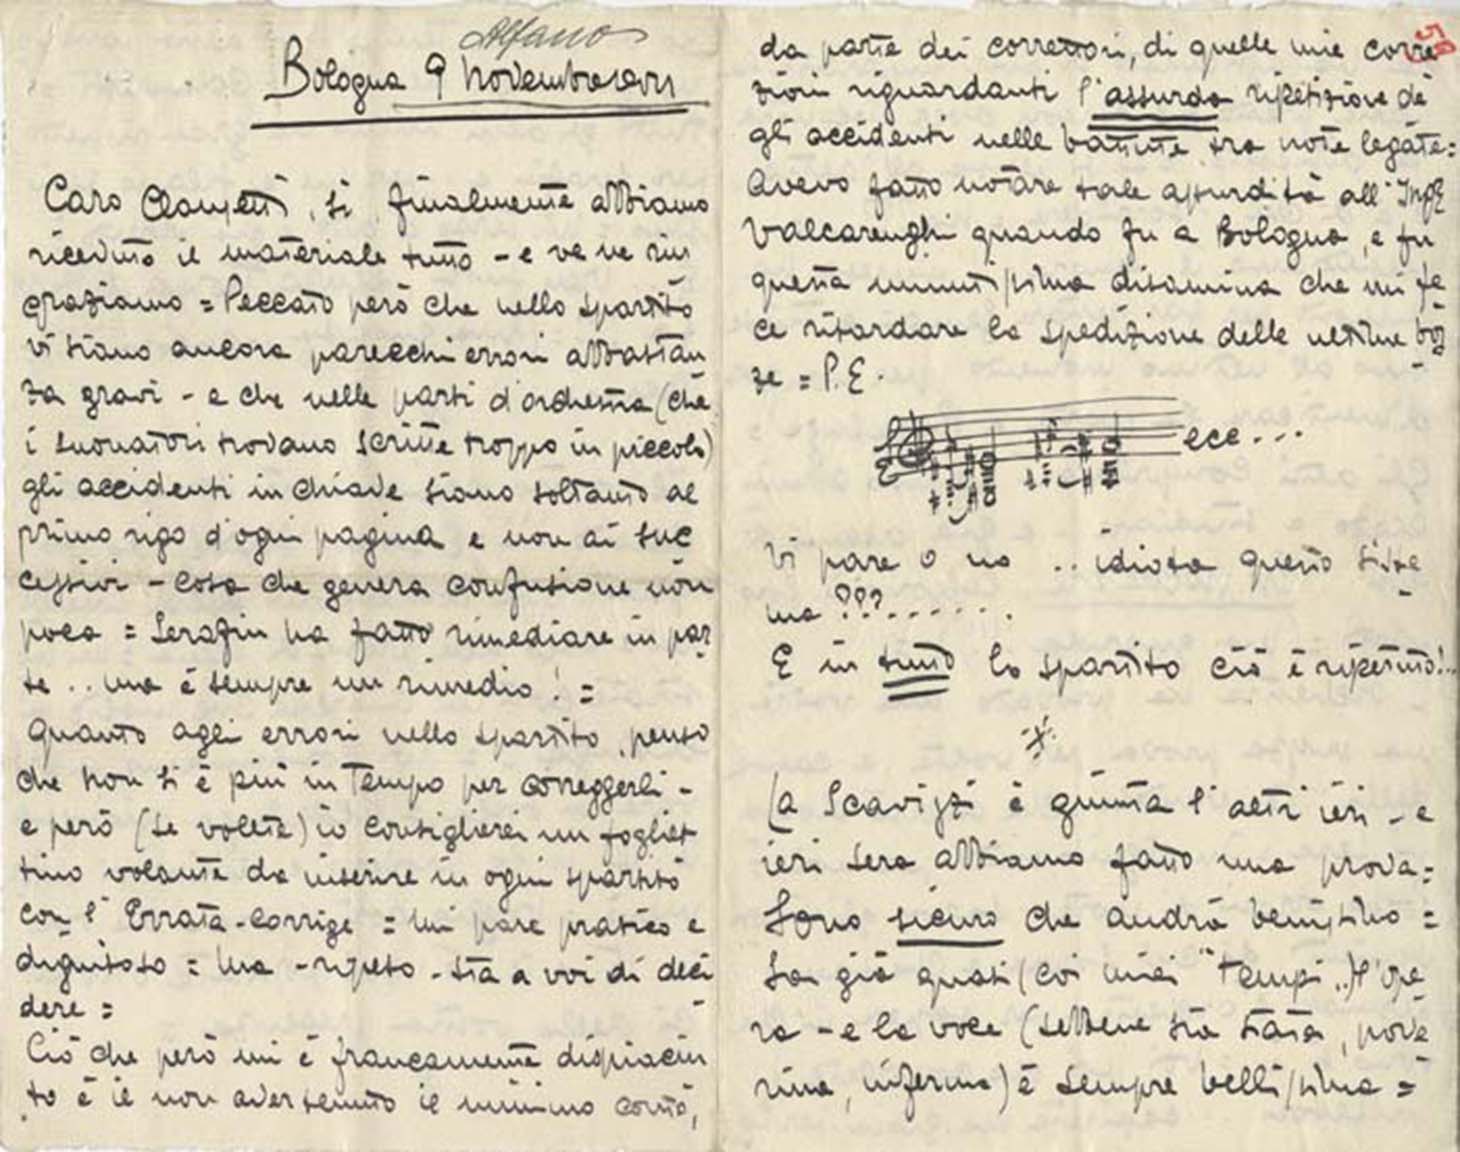 Alfano
Bologna 9 Novembre
Caro Clausetti, sì, finalmente abbiamo
ricevuto il materiale tutto – e ve ne rin
graziamo = Peccato però che nello spartito
vi siano ancora parecchi errori abbastan
za gravi – e che nelle parti d'orchestra (che
i suonatori trovano scritte troppo in piccolo)
gli accidenti in chiave siano soltanto al
primo rigo d'ogni pagina e non ai suc
cessivi – cosa che genera confusione non
poca = Serafin ha fatto rimediare in par
te .. ma è sempre un rimedio! =
Quanto agli errori nello spartito, penso
che non si è più in tempo per correggerli –
e però (se volete) io consiglierei un fogliet
tino volante da inserire in ogni spartito
con l'Errata-corrige = Mi pare pratico e
dignitoso = Ma – ripeto – sta a voi di deci
dere =
Ciò che però mi è francamente dispiaciu
to è il non aver tenuto il minimo conto,
58
da parte dei correttori, di quelle mie corre
zioni riguardanti l'assurda ripetizione de
gli accidenti nelle battute tra note legate =
Avevo fatto notare tale assurdità all'Ing
Valcarenghi quando fu a Bologna, e fu
questa minutissima disamina che mi fe
ce ritardare la spedizione delle ultime boz
ze = P.E.
ecc...
Vi pare o no .. idiota questo siste
ma ???......
E in tutto lo spartito ciò è ripetuto!..
La Scavizzi è giunta l'altr'ieri – e
ieri sera abbiamo fatto una prova =
Sono sicuro che andrà benissimo =
Sa già quasi (coi miei "tempi..) l'ope
ra – e la voce (sebbene sia stata, pove
rina, inferma) è sempre bellissima =